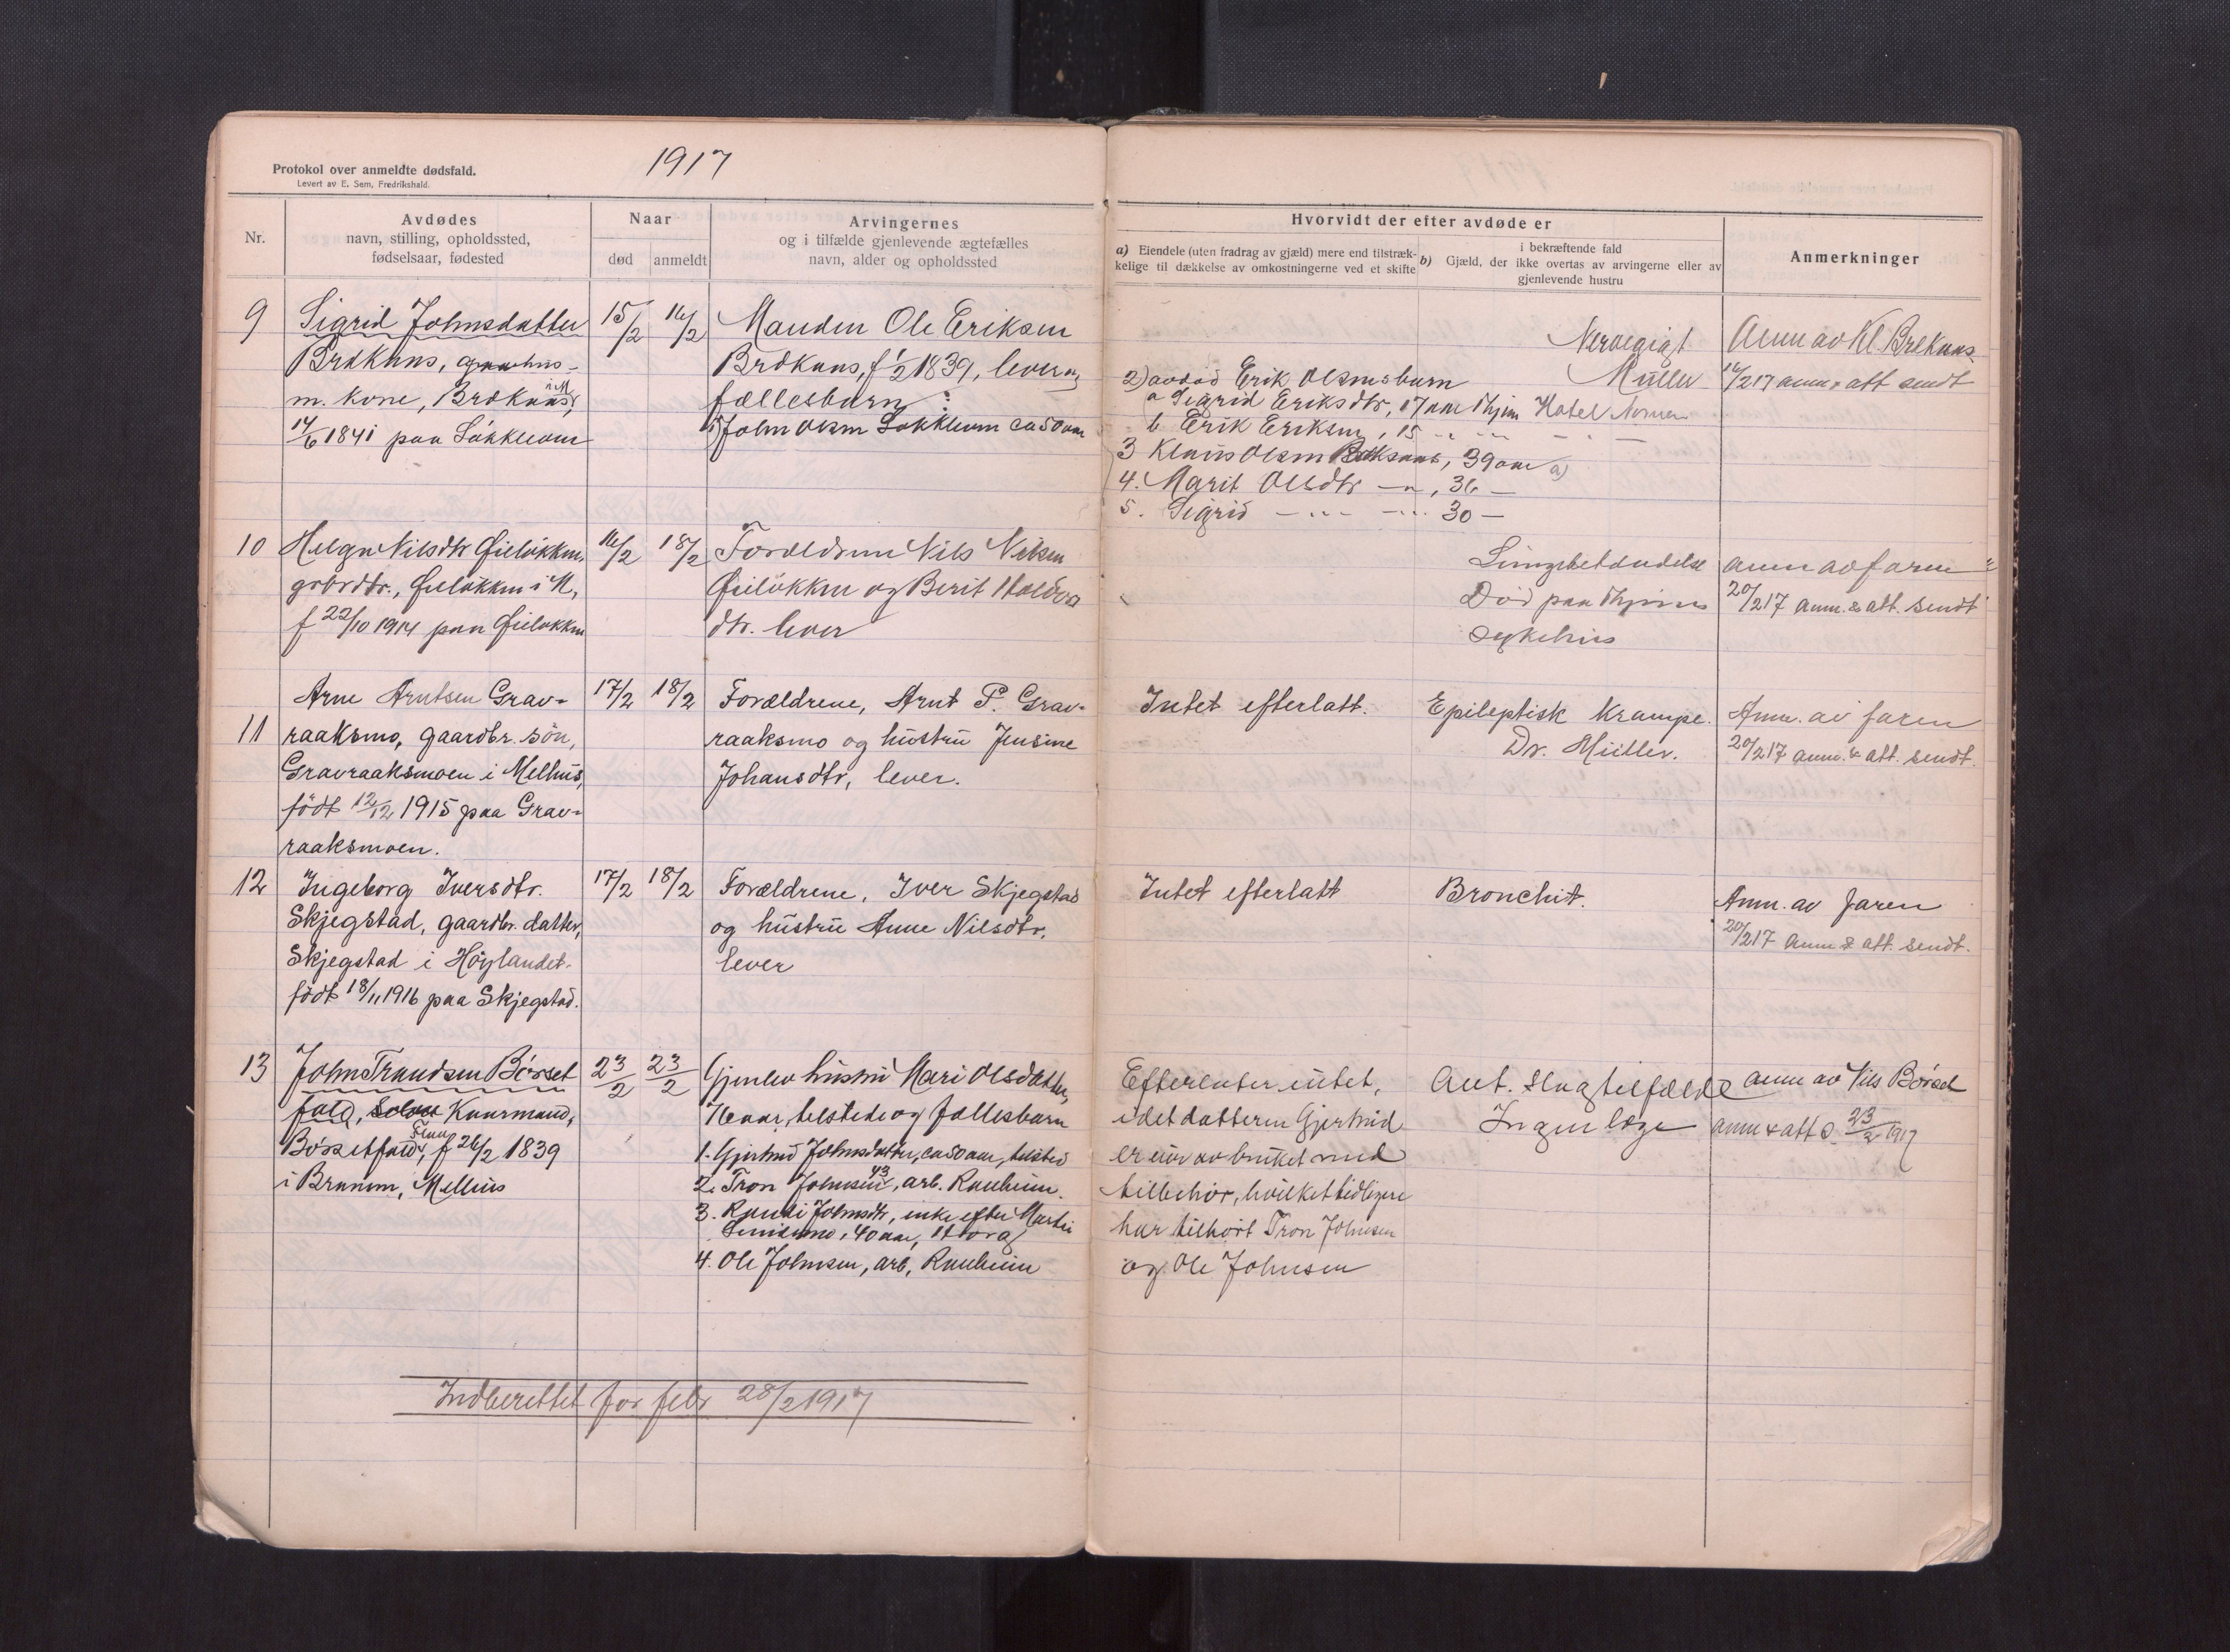 1917
Protokol over anmeldte dødsfald.
Levert av E. Sem, Fredrikshald.
Nr.
Avdødes
navn, stilling, opholdssted,
fødselsaar, fødested
Naar
død
anmeldt
Arvingernes
og i tilfælde gjenlevende ægtefælles
navn, alder og opholdssted
Hvorvidt der efter avdøde er
a) Eiendele (uten fradrag av gjæld) mere end tilstræk-
kelige til dækkelse av omkostningerne ved et skifte
b) i bekræftende fald
Gjæld, der ikke overtas av arvingerne eller av
gjenlevende hustru
Anmerkninger
9
Sigrid Johnsdatter
m. kone,
14/6 1841 paa Løkkleom
15/2
16/2
Manden Ole Eriksen
f 1/2 1839, lever og
fællesbarn:
1) John Olsen Løkkleom ca 50 aar
2) avdød Erik Olsens barn
a Sigrid Eriksdtr, 17 aar Thjem Hotel
b Erik Eriksen, 15 - " - " -
3 Klaus Olsen 39 aar a)
4. Marit Olsdtr - " -, 36 -
5. Sigrid - " - - " - 30 -
Müller
Anm av Kl. Brekaas
/2 17 anm & att sendt
10
Helga Nilsdtr Øieløkken,
grbrdtr., Øieløkken i M,
f 22/10 1914 paa Øieløkken
16/2
18/2
Forældrene Nils Nilsen
Øieløkken og Berit
dtr. lever
Lungebetændelse
Død paa Thjems
sykehus
anm av faren
20/2 17 anm. & att. sendt
11
Arne Arntsen Grav-
raaksmo, gaardbr. søn,
Gravraaksmoen i Melhus,
født 12/12 1915 paa Grav-
raaksmoen.
17/2
18/2
Forældrene, Arnt P. Grav-
raaksmo og hustru Jensine
Johansdtr, lever.
Intet efterlatt.
Epileptisk krampe.
Dr. Müller.
Anm. av faren
20/2 17 anm. & att. sendt.
12
Ingeborg Iversdtr.
Skjegstad, gaardbr. datter,
Skjegstad i Høylandet.
født 18/11 1916 paa Skjegstad.
17/2
18/2
Forældrene, Iver Skjegstad
og hustru Anne Nilsdtr.
lever
Intet efterlatt
Bronchit.
Anm. av faren
20/2 17 anm & att. sendt.
13
John Trondsen Børset
fald, Kaarmand,
Børsetfald, Flaa, f 26/2 1839
i Melhus
23/2
23/2
Gjenlev hustru Mari Olsdatter,
76 aar, tilstede og fællesbarn
1. Gjertrud Johnsdatter, ca 50 aar, tilsted
2. Tron Johnsen 43, arb. Ranheim.
3. Randi Johnsdtr, enke efter Martin
40 aar,
4. Ole Johnsen, arb, Ranheim
Efterlater intet,
idet datteren Gjertrud
er eier av bruket med
tilbehør, hvilket tidligere
har tilhørt Tron Johnsen
og Ole Johnsen
Ant. slagtilfælde
Ingen læge
anm av Nils Børset
anm & att s. 23/2 1917
Indberettet for febr 28/2 1917